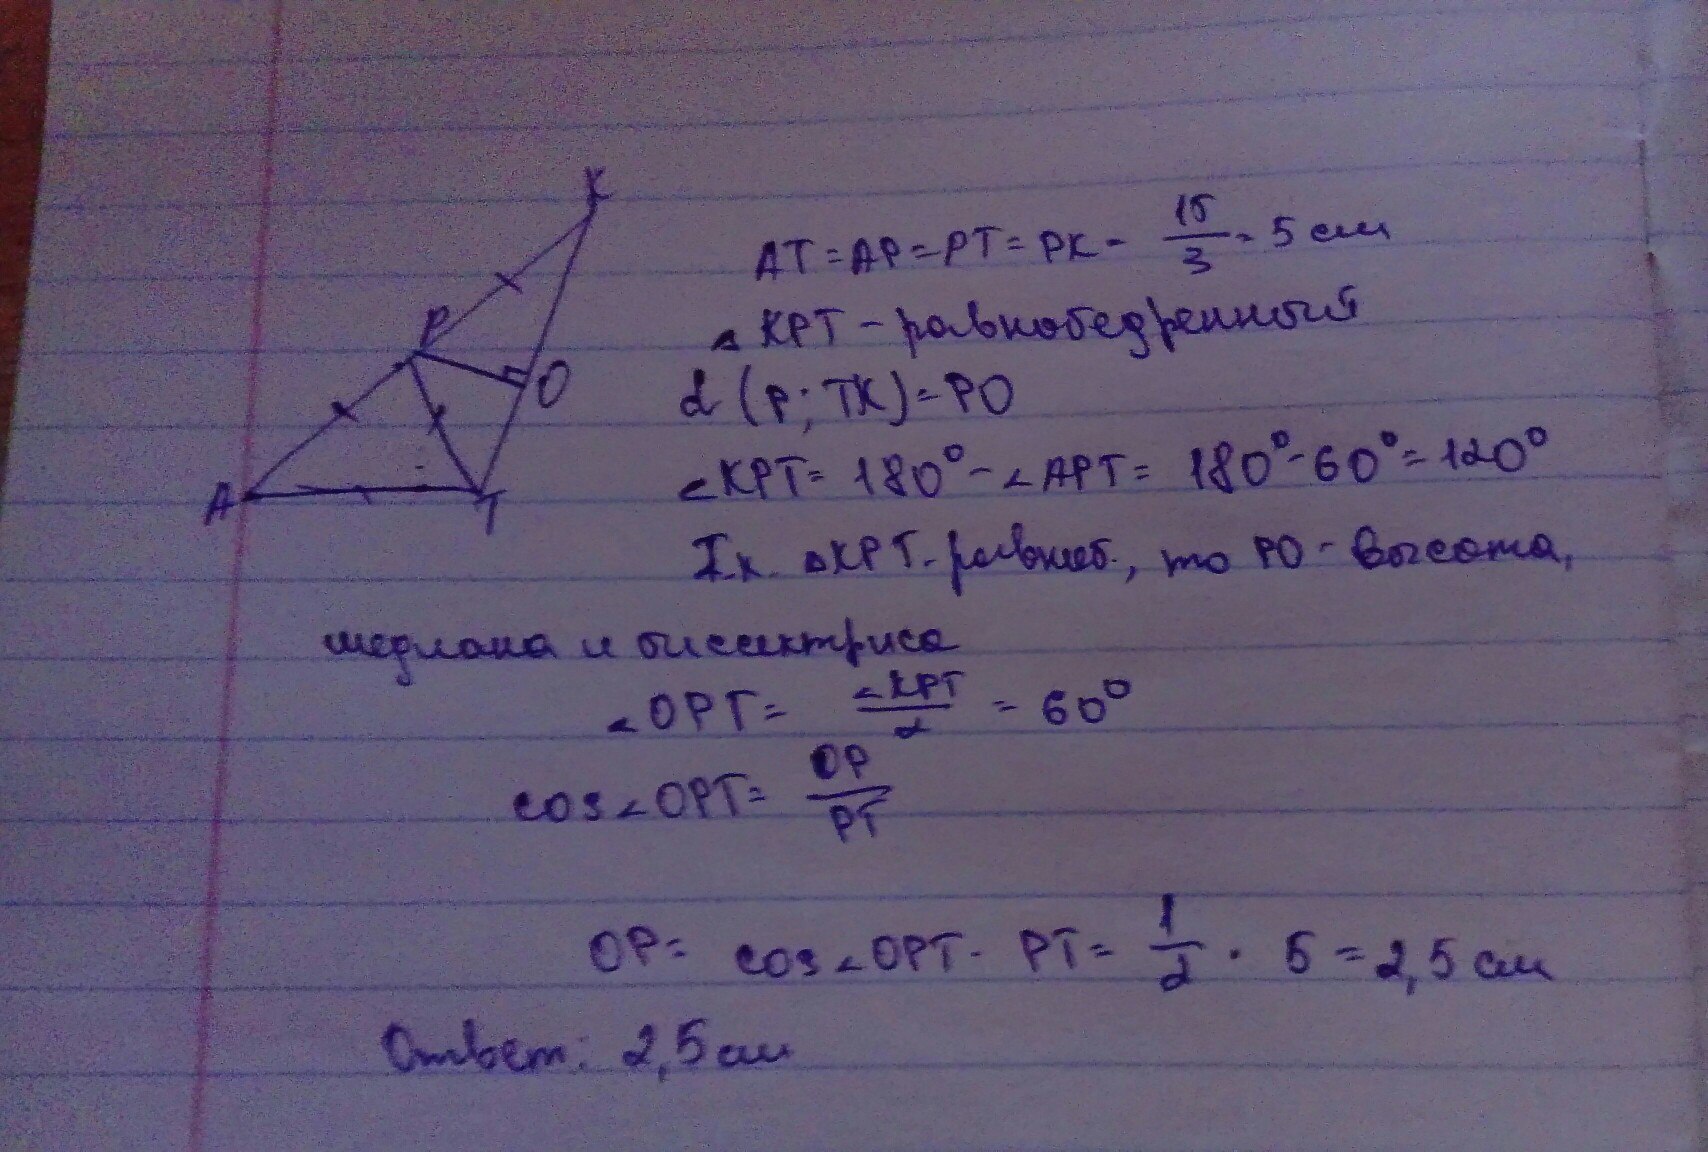 K
P
O
A
T
AT = AP = PT = PK - 15/3 = 5 см
△ KPT - равнобедренный
d (P; TK) = PO
∠KPT = 180° - ∠APT = 180° - 60° = 120°
Т.к. △KPT - равноб., то PO - высота,
медиана и биссектриса
∠OPT = ∠KPT/2 = 60°
cos∠OPT = OP/PT
OP = cos∠OPT · PT = 1/2 · 5 = 2,5 см
Ответ: 2,5 см